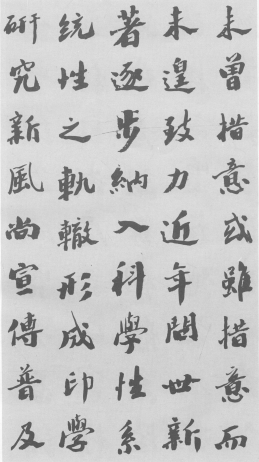 未曾措意或雖措意而
未遑致力近年問世新
著逐步納入科學性系
統性之軌轍形成印學
研究新風尚宣傳普及